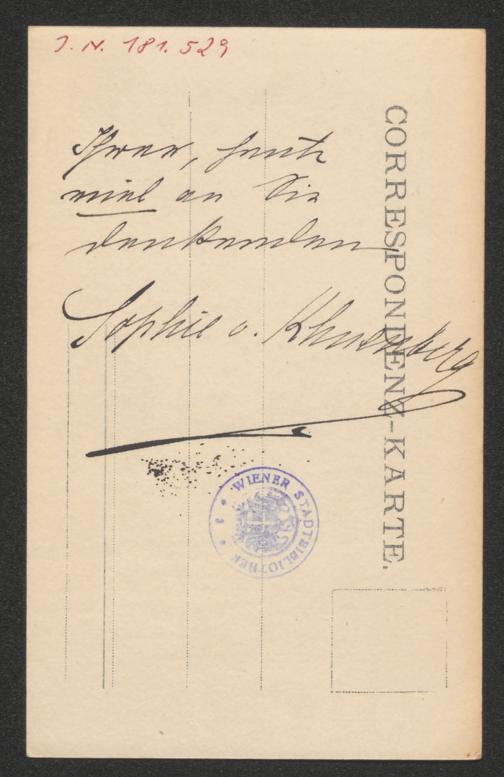 J. N. 181.529
Ihrer, heute
viel an Sie
denkenden
Sophie v. Khuenberg
CORRESPONDENZ-KARTE.
WIENER STADTBIBLIOTHEK